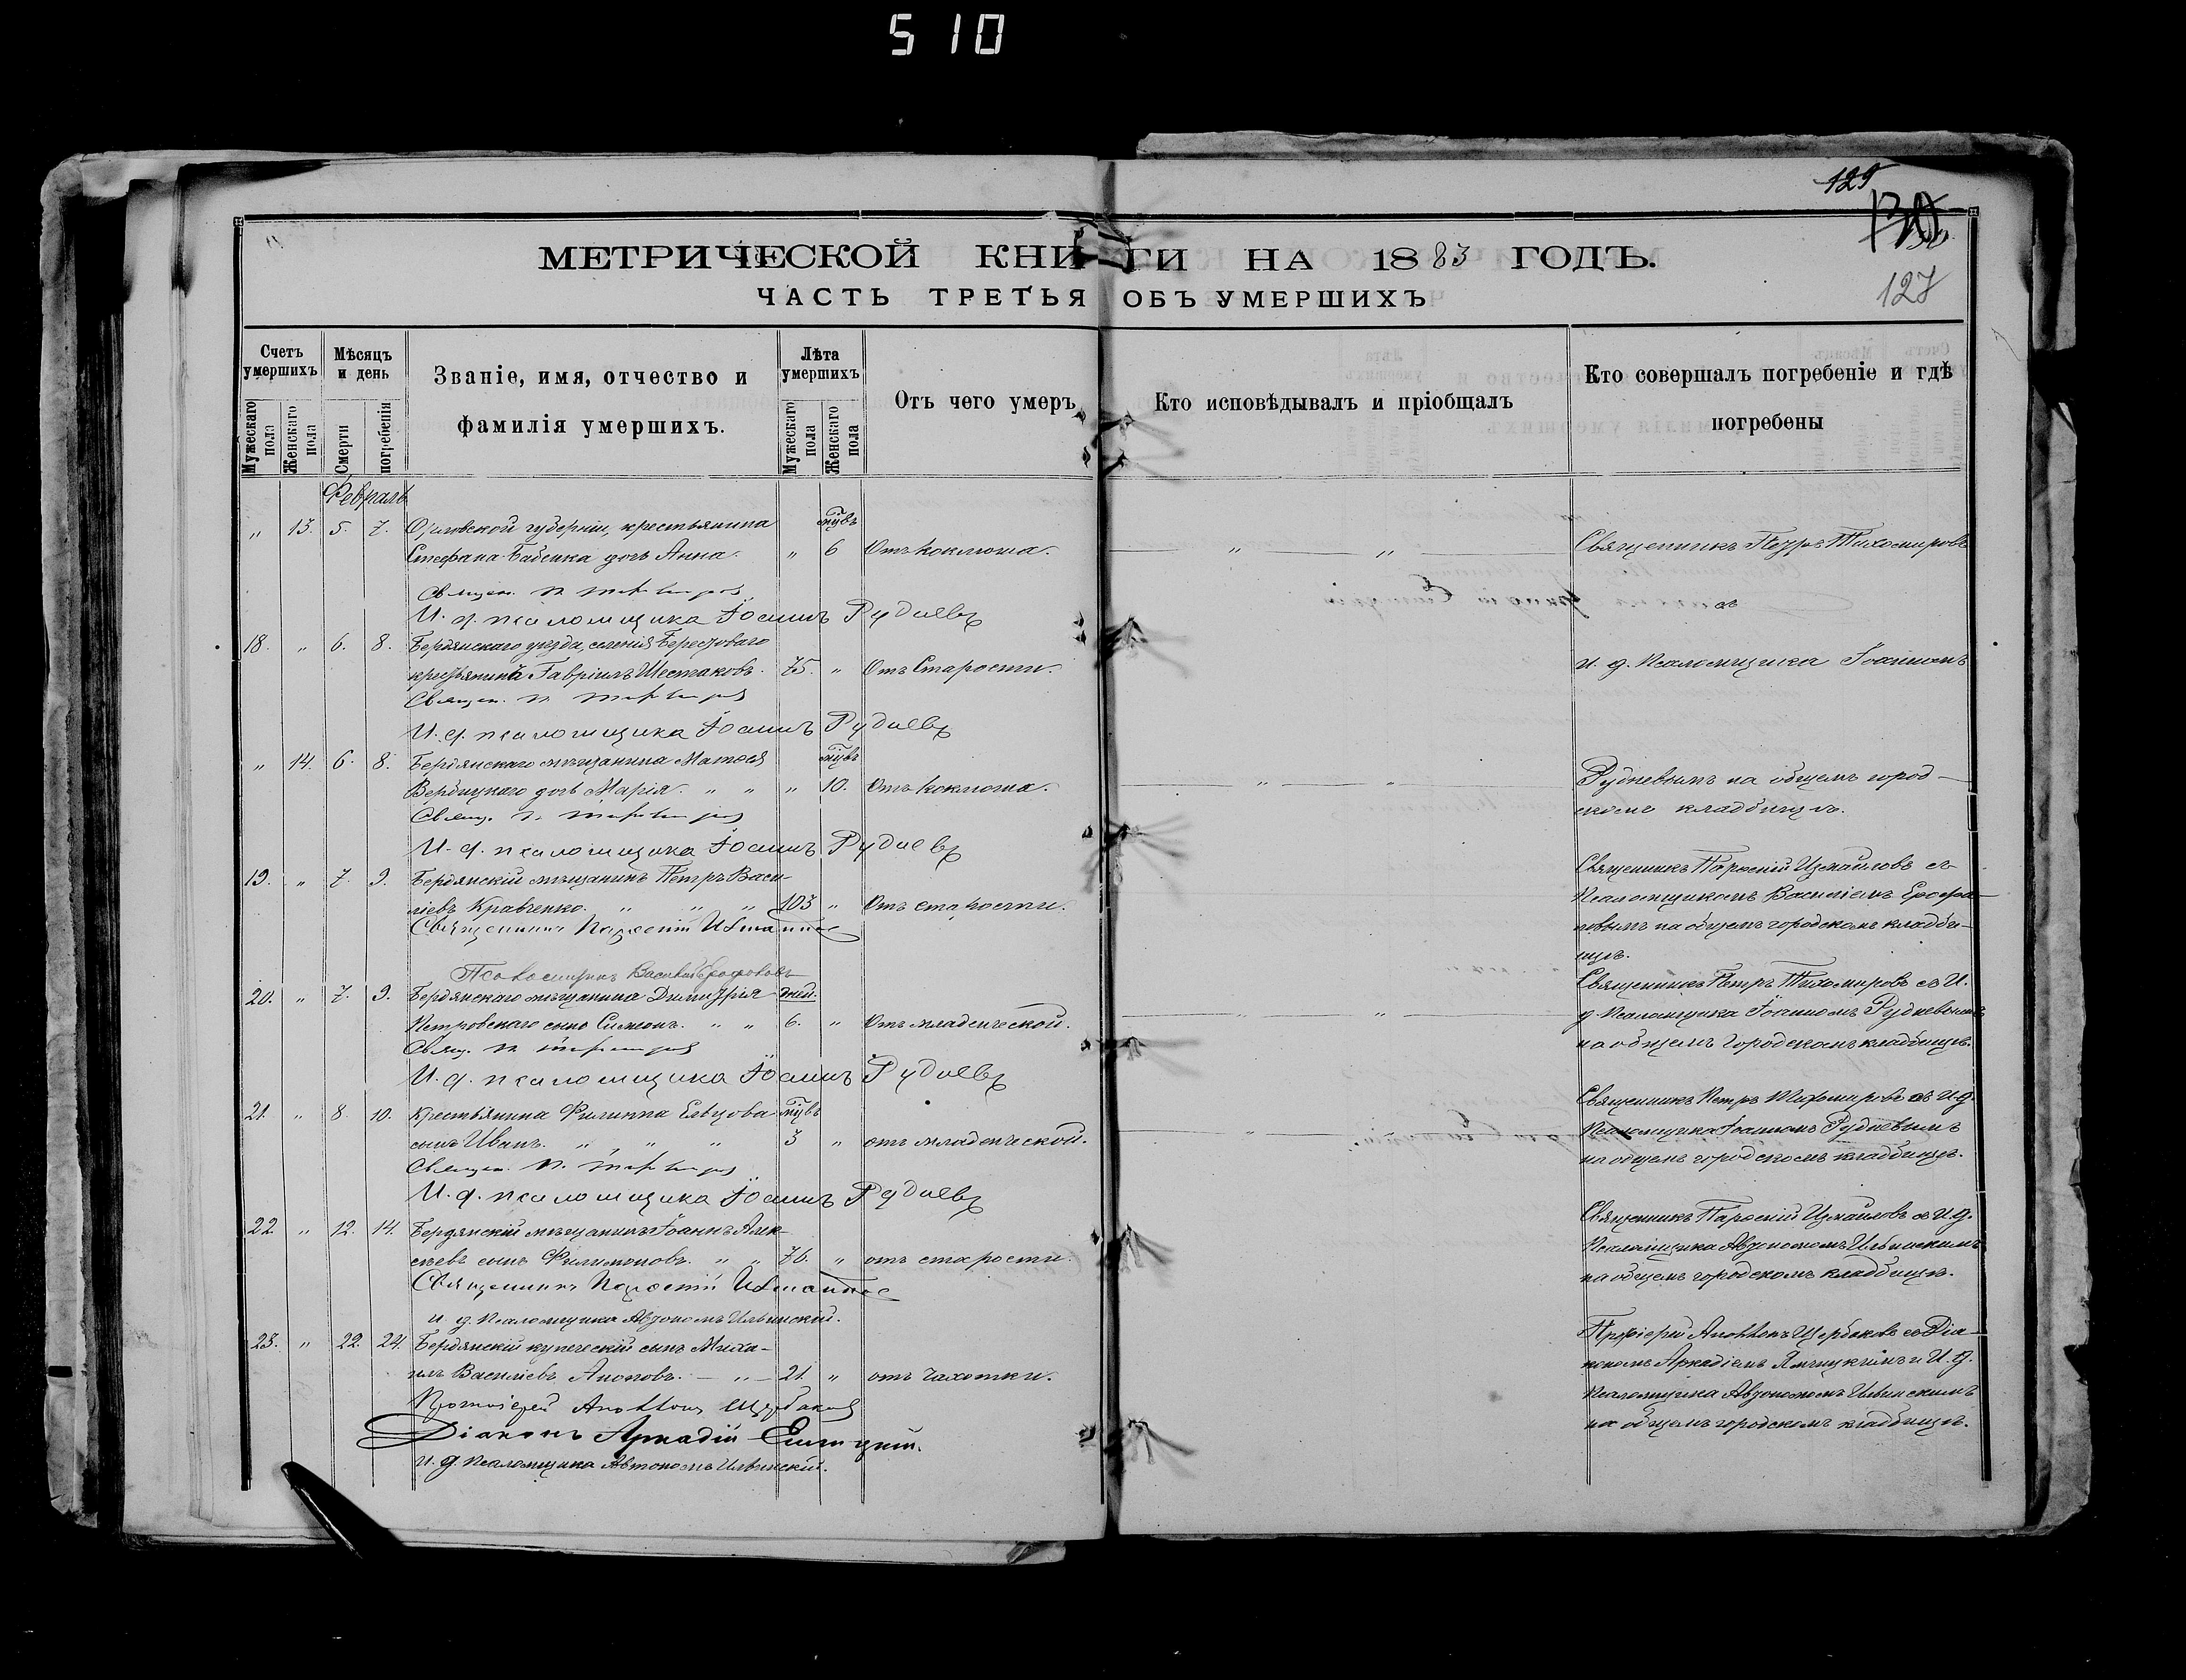 510
129
127
МЕТРИЧЕСКОЙ КНИГИ НА 1883 ГОДЪ.
ЧАСТЬ ТРЕТЬЯ ОБЪ УМЕРШИХЪ
Счетъ умершихъ
Мужескаго пола
Женскаго пола
Мѣсяцъ и день
Смерти
погребенія
Званіе, имя, отчество и
фамилія умершихъ.
Лѣта умершихъ
Мужескаго пола
Женскаго пола
Отъ чего умеръ
Кто исповѣдывалъ и пріобщалъ
Кто совершалъ погребеніе и гдѣ
погребены
Февраль
" 13. 5. 7. губерніи, крестьянина
Стефана Бабенка дочь Анна. " 6 Отъ коклюша. " " Священникъ Петръ Тихомировъ
Священ. П. Тихомировъ
съ
И. д. псаломщика Іоаннъ Рудневъ
18. " 6. 8. Бердянскаго уѣзда, селенія Берестоваго
крестьянинъ Гавріилъ Шестаковъ. 75. " Отъ Старости. И. д. Псаломщика Іоанномъ
Священ. П. Тихомировъ
И. д. псаломщика Іоаннъ Рудневъ
" 14. 6. 8. Бердянскаго мѣщанина Матѳея
дочь Марія. " " " 10. Отъ коклюша. " " Рудневымъ на общемъ город-
скомъ кладбищѣ.
Свящ. П. Тихомировъ
И. д. псаломщика Іоаннъ Рудневъ
19. " 7. 9. Бердянскій мѣщанинъ Петръ Васи-
ліевъ Кравченко. " " " 103 " Отъ старости.
Священникъ Парѳеній Измаиловъ съ
Псаломщикомъ Василіемъ
на общемъ городскомъ кладби-
щѣ.
Священникъ Парѳеній Измаиловъ
Псаломщикъ Василій
20. " 7. 9. Бердянскаго мѣщанина Димитрія дней.
Петровскаго сынъ Симеонъ. " " 6. " Отъ младенческой. " "
Священникъ Петръ Тихомировъ съ И.
д. Псаломщика Іоанномъ Рудневымъ
на общемъ Городскомъ кладбищѣ.
Свящ. П. Тихомировъ
И. д. псаломщика Іоаннъ Рудневъ
21. " 8. 10. Крестьянина Филиппа Ельцова
сынъ Иванъ. " " " 3 " отъ младенческой. "
Священникъ Петръ Тихомировъ съ И. д.
Псаломщика Іоанномъ Рудневымъ
на общемъ городскомъ кладбищѣ.
Священ. П. Тихомировъ
И. д. псаломщика Іоаннъ Рудневъ
22. " 12. 14. Бердянскій мѣщанинъ Іоаннъ Алек-
сѣевъ сынъ Филимоновъ. " " 76. " отъ старости.
Священникъ Парѳеній Измаиловъ съ И. д.
Псаломщика Автономомъ Ильинскимъ
на общемъ городскомъ кладбищѣ.
Священникъ Парѳеній Измаиловъ
и. д. Псаломщика Автономъ Ильинскій.
23. " 22. 24. Бердянскій купеческій сынъ Миха-
илъ Василіевъ Аноповъ. " 21. " отъ чахотки.
Протоіерей Щербаковъ съ Діа-
кономъ Аркадіемъ и И. д.
Псаломщика Автономомъ Ильинскимъ
на общемъ городскомъ кладбищѣ.
Протоіерей Щербаковъ
Діаконъ Аркадій
И. д. Псаломщика Автономъ Ильинскій.